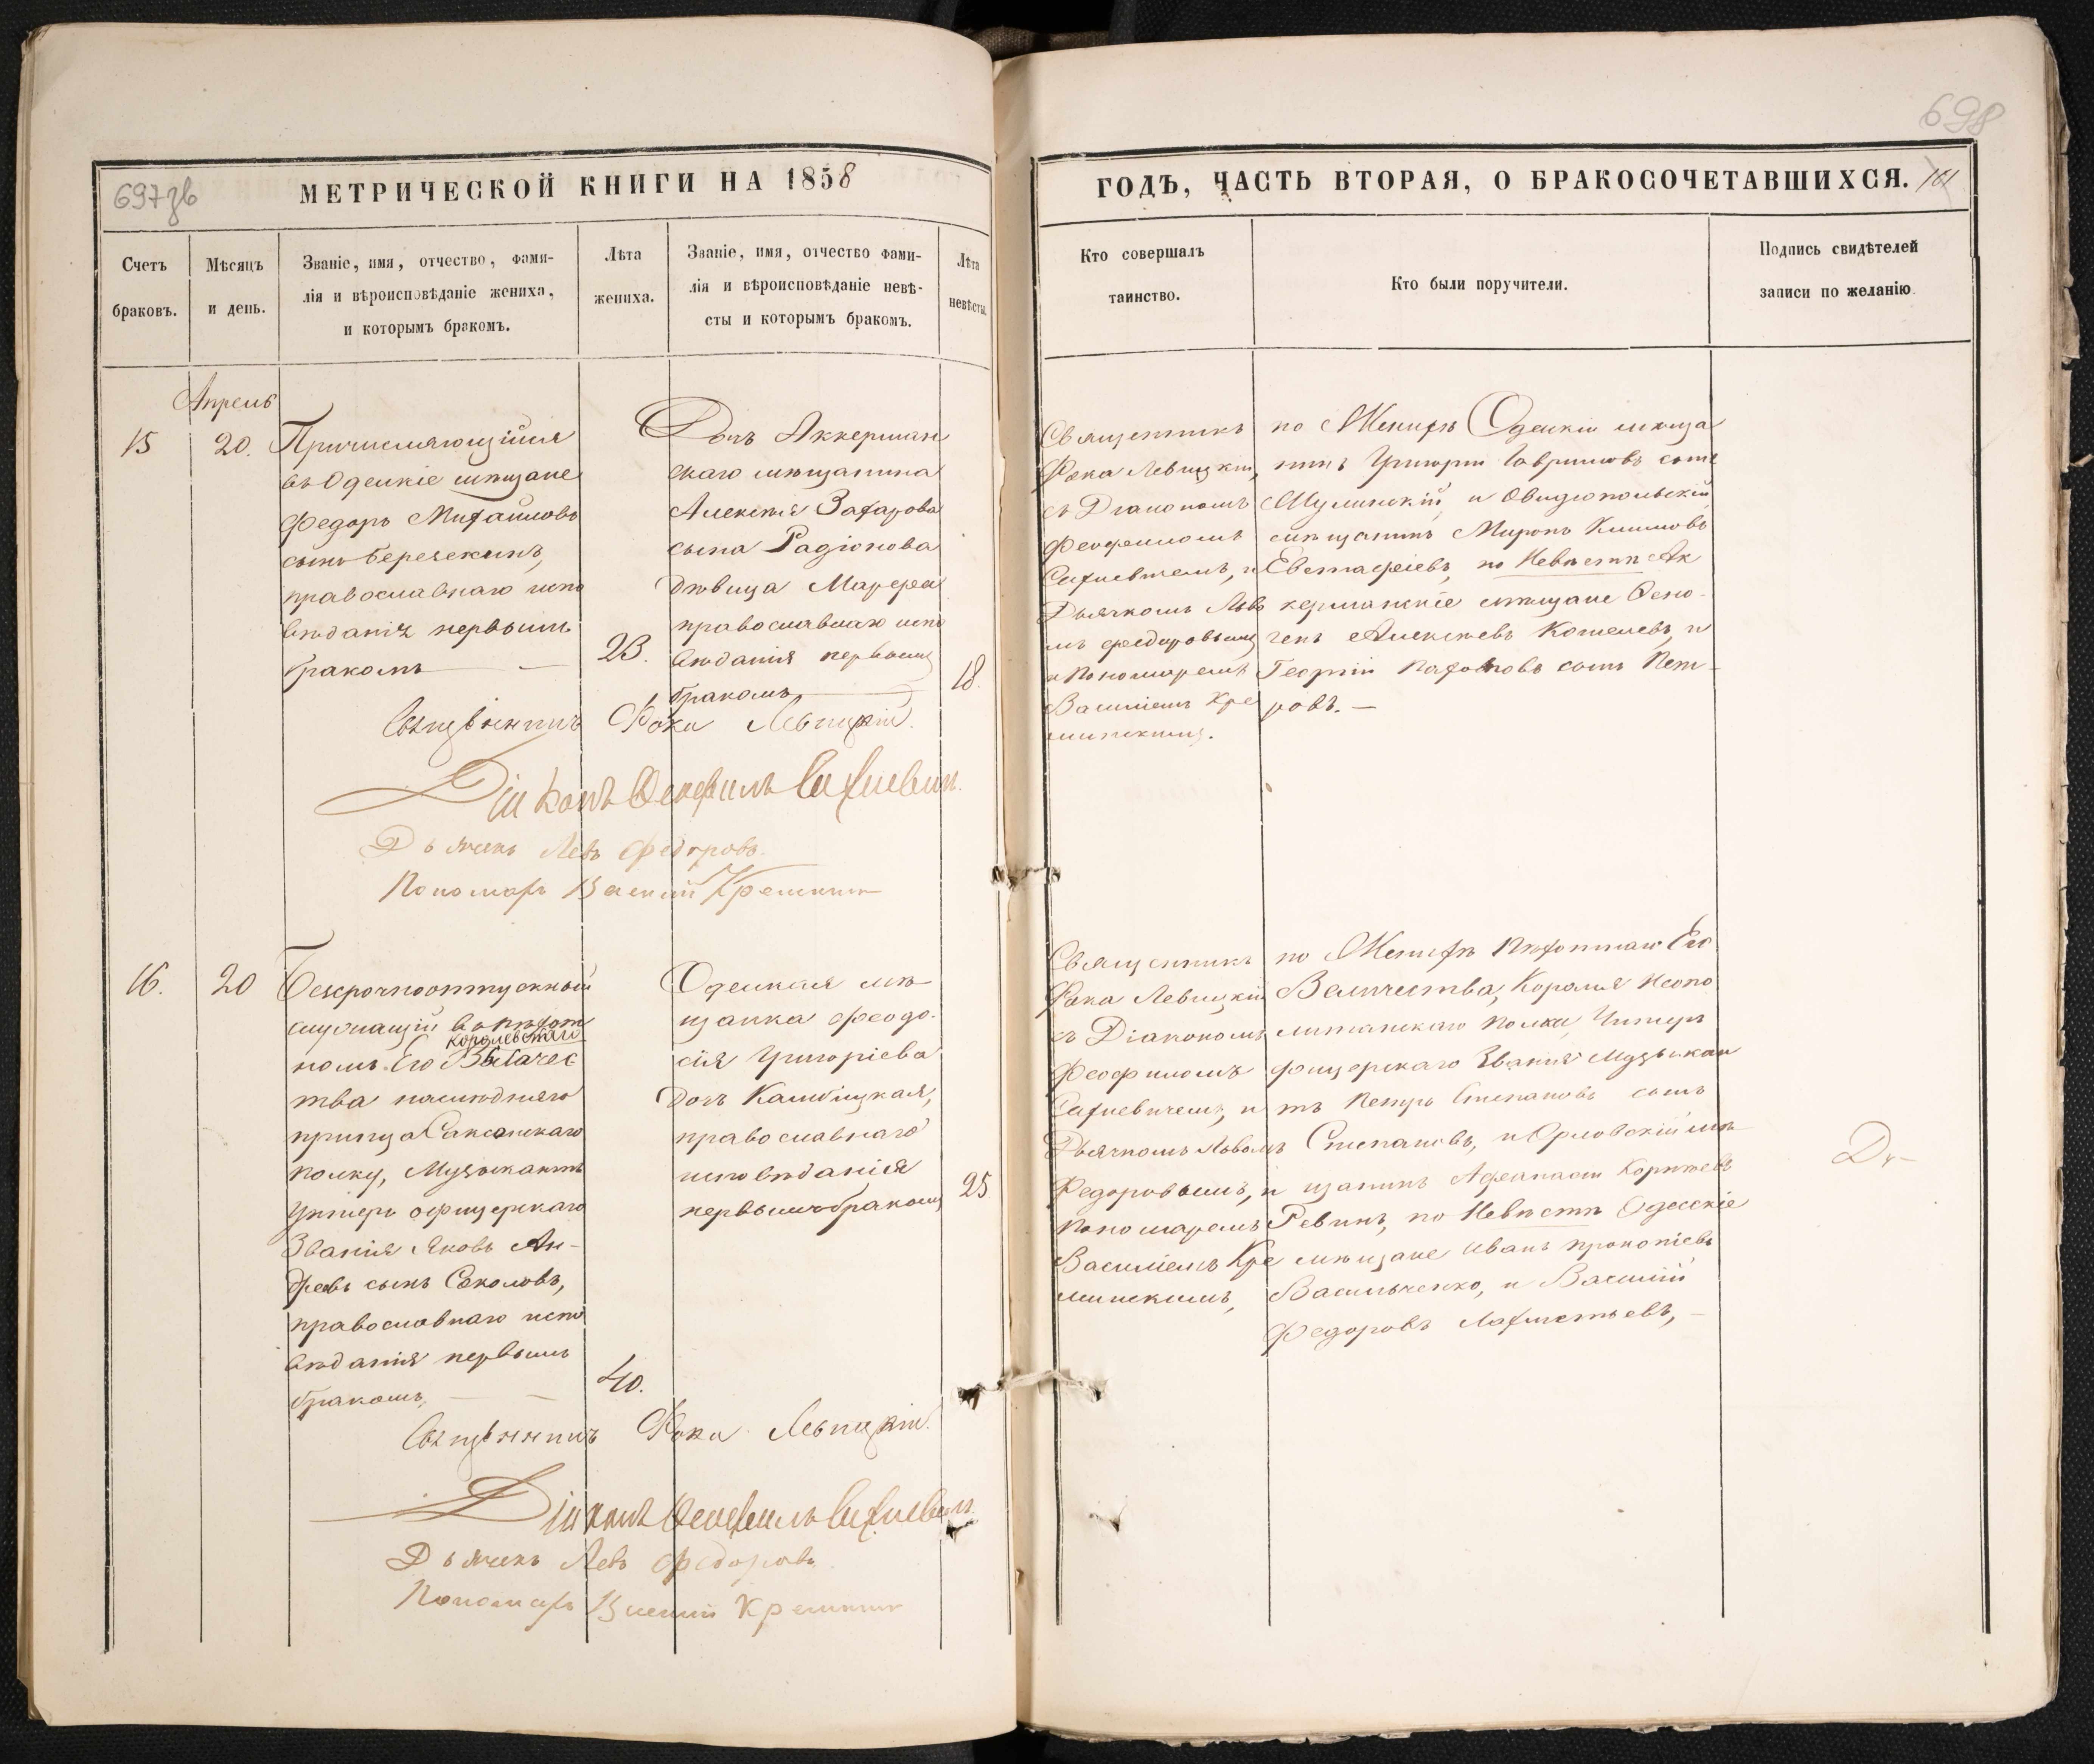 697зв
МЕТРИЧЕСКОЙ КНИГИ НА 1858
Счетъ
браковъ.
Мѣсяцъ
и день.
Званіе, имя, отчество, фами-
лія и вѣроисповѣданіе жениха,
и которымъ бракомъ.
Лѣта
жениха.
Званіе, имя, отчество фами-
лія и вѣроисповѣданіе невѣ-
сты и которымъ бракомъ.
Лѣта
невѣсты.
Апрель
15
20.
Причисляющійся
въ Одескіе мѣщане
Федоръ Михайловъ
сынъ Березекинъ,
православнаго испо
вѣданія первымъ
бракомъ
23.
Дочь Аккерман
скаго мѣщанина
Алексѣя Захарова
сына Радіонова
дѣвица Марфа
православнаго испо
вѣданія первымъ
бракомъ,
18.
Священникъ Фока Левицкій.
Діаконъ Феофилъ
Дьячекъ Левъ Федоровъ.
Пономарь Василій
16.
20
Безсрочноотпускный
служащій въ пѣхот
номъ Его Королевскаго Высочес
тва наслѣднаго
принца Саксонскаго
полку, Музыкантъ
унтеръ офицерскаго
Званія Яковъ Ан-
дреевъ сынъ Соколовъ,
православнаго испо
вѣданія первымъ
бракомъ,
40.
Одеская мѣ
щанка Феодо-
сія Григоріева
дочь Камбицкая,
православнаго
исповѣданія
первымъ бракомъ
25
Священникъ Фока Левицкій.
Діаконъ Феофилъ
Дьячекъ Левъ Федоровъ
Пономарь Василій
698
ГОДЪ, ЧАСТЬ ВТОРАЯ, О БРАКОСОЧЕТАВШИХСЯ.
101
Кто совершалъ
таинство.
Кто были поручители.
Подпись свидѣтелей
записи по желанію
Священникъ
Фока Левицкій,
съ Діакономъ
Феофиломъ
Дьячкомъ Льво
мъ Федоровымъ
и Пономаремъ
Василіемъ Кре
минскимъ.
по Женихѣ Одескій мѣща
нинъ Григорій Гавриловъ сынъ
Шулинскій, и Овидіопольскій
мѣщанинъ Миронъ Климовъ
Евстафіевъ, по Невѣстѣ Ак
керманскіе мѣщане
Алексѣевъ Кошелевъ, и
Георгій сынъ Пет-
ровъ.—
Священникъ
Фока Левицкій
съ Діакономъ
Феофиломъ
Дьячкомъ Львомъ
Федоровымъ, и
Пономаремъ
Василіемъ Кре
минскимъ,
по Женихѣ Пѣхотнаго Его
Величества, Короля Неапо
литанскаго полка, Унтеръ
фицерскаго Званія Музыкан
тъ Петръ Степановъ сынъ
Степановъ, и Орловскій мѣ
щанинъ Афанасій
Ревинъ, по Невѣстѣ Одесскіе
мѣщане Иванъ Прокопіевъ
Васильченко, и Василій
Федоровъ